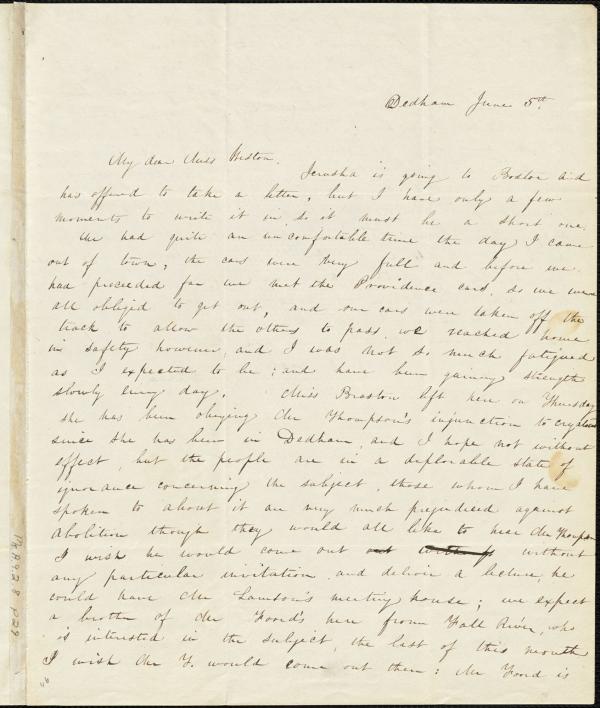 Dedham June 5th.
My dear Miss Weston.
Jerusha is going to Boston and
has offered to take a letter, but I have only a few
moments to write it in, so it must be a short one.
We had quite an uncomfortable time the day I came
out of town, the cars were very full and before we
had proceeded far we met the Providence cars, so we were
all obliged to get out, and our cars were taken off the
track to allow the others to pass, we reached home
in safety however, and I was not so much fatigued
as I expected to be; and have been gaining strength
slowly every day. Miss left here on Thursday
she has been obeying Mr Thompson's injunction to
since she has been in Dedham, and I hope not without
effect, but the people are in a deplorable state of
ignorance concerning the subject, those whom I have
spoken to about it are very much prejudiced against
abolition though they would all like to hear Mr Thompson
I wish he would come out without
any particular invitation, and deliver a lecture, he
could have Mr Lamson's meeting house; we expect
a brother of Mr Foord's here from Fall River, who
is interested in the subject, the last of this month
I wish Mr T. would come out then: Mr Foord is